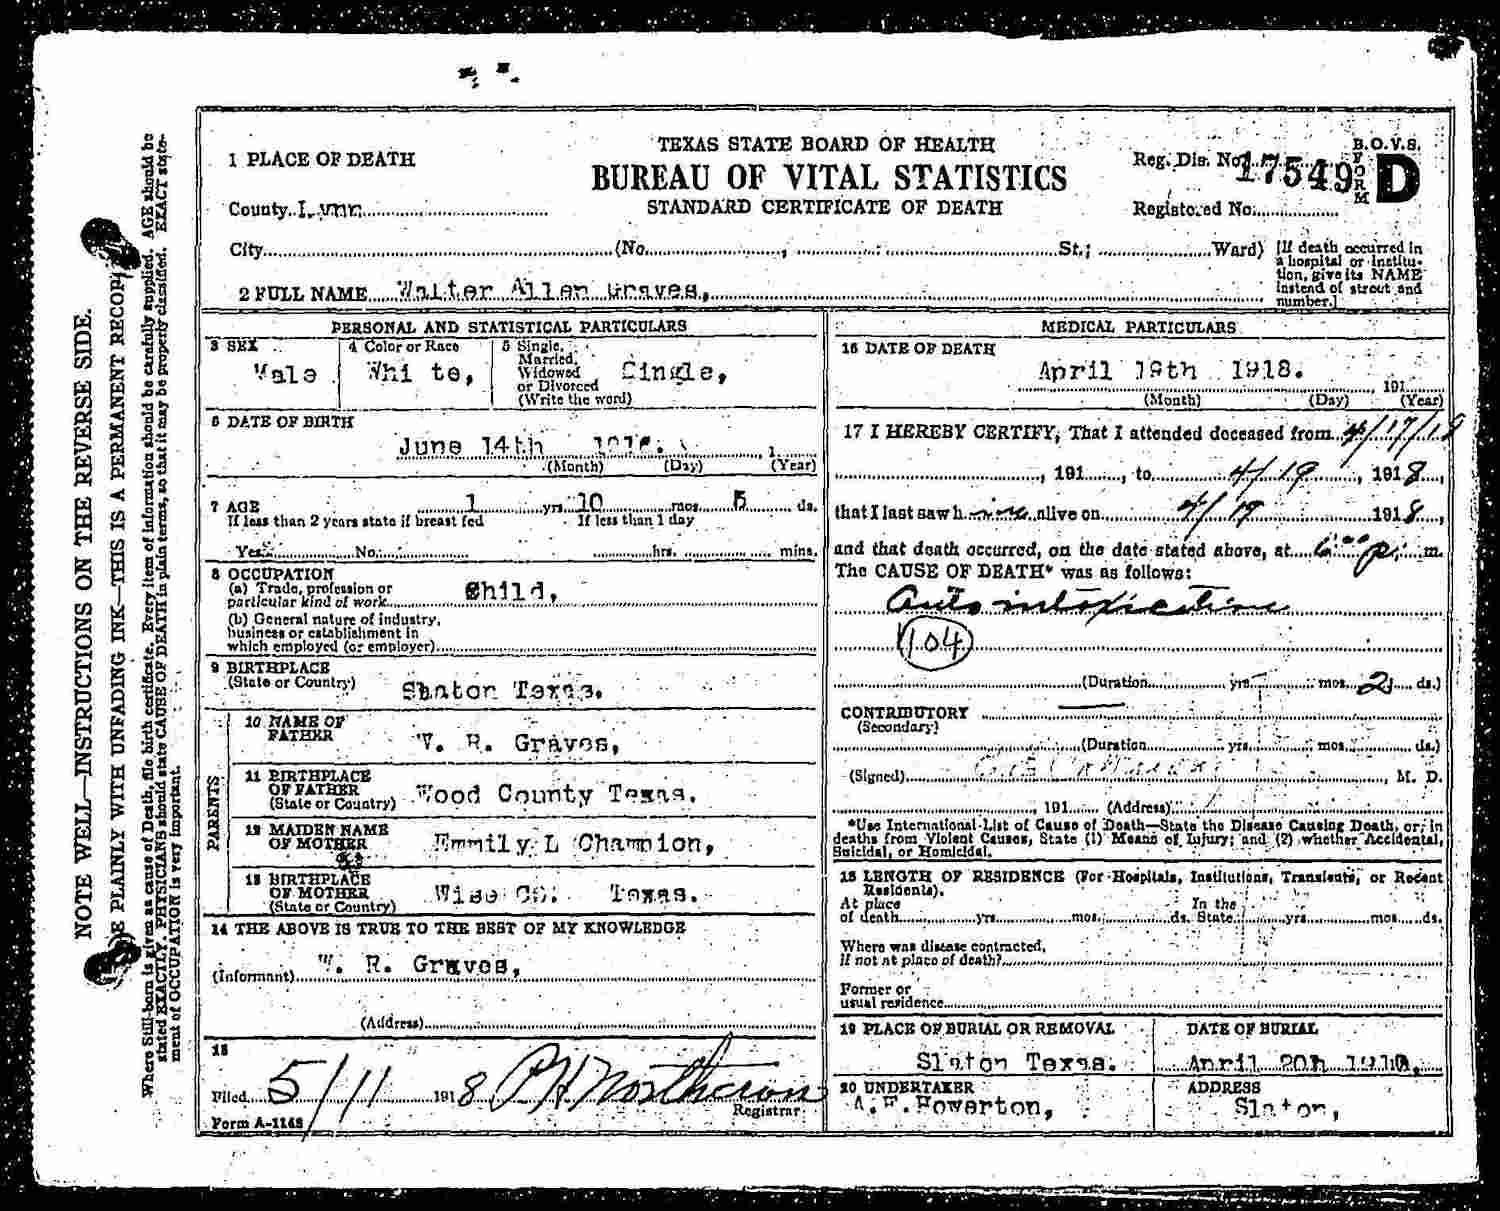 TEXAS STATE BOARD OF HEALTH
BUREAU OF VITAL STATISTICS
STANDARD CERTIFICATE OF DEATH
B.O.V.S.
FORM D
Reg. Dis. No. 17549
Registered No.
1 PLACE OF DEATH
County Lynn
City (No. , St.; Ward)
[If death occurred in
a hospital or institu-
tion, give its NAME
instead of street and
number.]
2 FULL NAME Walter Allen Graves,
PERSONAL AND STATISTICAL PARTICULARS
3 SEX Male
4 Color or Race White,
5 Single,
Married,
Widowed
or Divorced
(Write the word)
Single,
6 DATE OF BIRTH
June 14th , 1
(Month) (Day) (Year)
7 AGE 1 yrs. 10 mos. 5 ds.
If less than 2 years state if breast fed If less than 1 day
Yes No hrs. mins.
8 OCCUPATION
(a) Trade, profession or
particular kind of work Child,
(b) General nature of industry,
business or establishment in
which employed (or employer)
9 BIRTHPLACE
(State or Country) Slaton Texas.
PARENTS
10 NAME OF
FATHER R. Graves,
11 BIRTHPLACE
OF FATHER
(State or Country) Wood County Texas.
12 MAIDEN NAME
OF MOTHER Emmily L Champion,
13 BIRTHPLACE
OF MOTHER
(State or Country) Wise CO. Texas.
14 THE ABOVE IS TRUE TO THE BEST OF MY KNOWLEDGE
(Informant) R. Graves,
(Address)
15
Filed 5/11 1918 P.H. Northcross
Registrar
Form A-1148
MEDICAL PARTICULARS
16 DATE OF DEATH
April 19th 1918. , 191
(Month) (Day) (Year)
17 I HEREBY CERTIFY, That I attended deceased from 4/17/18
, 191 , to 4/19 , 1918,
that I last saw h im alive on 4/19 1918,
and that death occurred, on the date stated above, at 6:00 p. m.
The CAUSE OF DEATH* was as follows:
Auto intoxication
104
(Duration yrs. mos. 2 ds.)
CONTRIBUTORY —
(Secondary)
(Duration yrs. mos. ds.)
(Signed) , M. D.
, 191 (Address)
*Use International List of Cause of Death—State the Disease Causing Death, or, in
deaths from Violent Causes, State (1) Means of Injury; and (2) whether Accidental,
Suicidal, or Homicidal.
18 LENGTH OF RESIDENCE (For Hospitals, Institutions, Transients, or Recent
Residents).
At place In the
of death yrs. mos. ds. State yrs. mos. ds.
Where was disease contracted,
if not at place of death?
Former or
usual residence
19 PLACE OF BURIAL OR REMOVAL
Slaton Texas.
DATE OF BURIAL
April 20h
20 UNDERTAKER
Howerton,
ADDRESS
Slaton,
NOTE WELL—INSTRUCTIONS ON THE REVERSE SIDE.
PLAINLY WITH UNFADING INK—THIS IS A PERMANENT RECORD
Where Still-born is given as cause of Death, file birth certificate. Every item of information should be carefully supplied. AGE should be
stated EXACTLY. PHYSICIANS should state CAUSE OF DEATH in plain terms, so that it may be properly classified. EXACT state-
ment of OCCUPATION is very important.